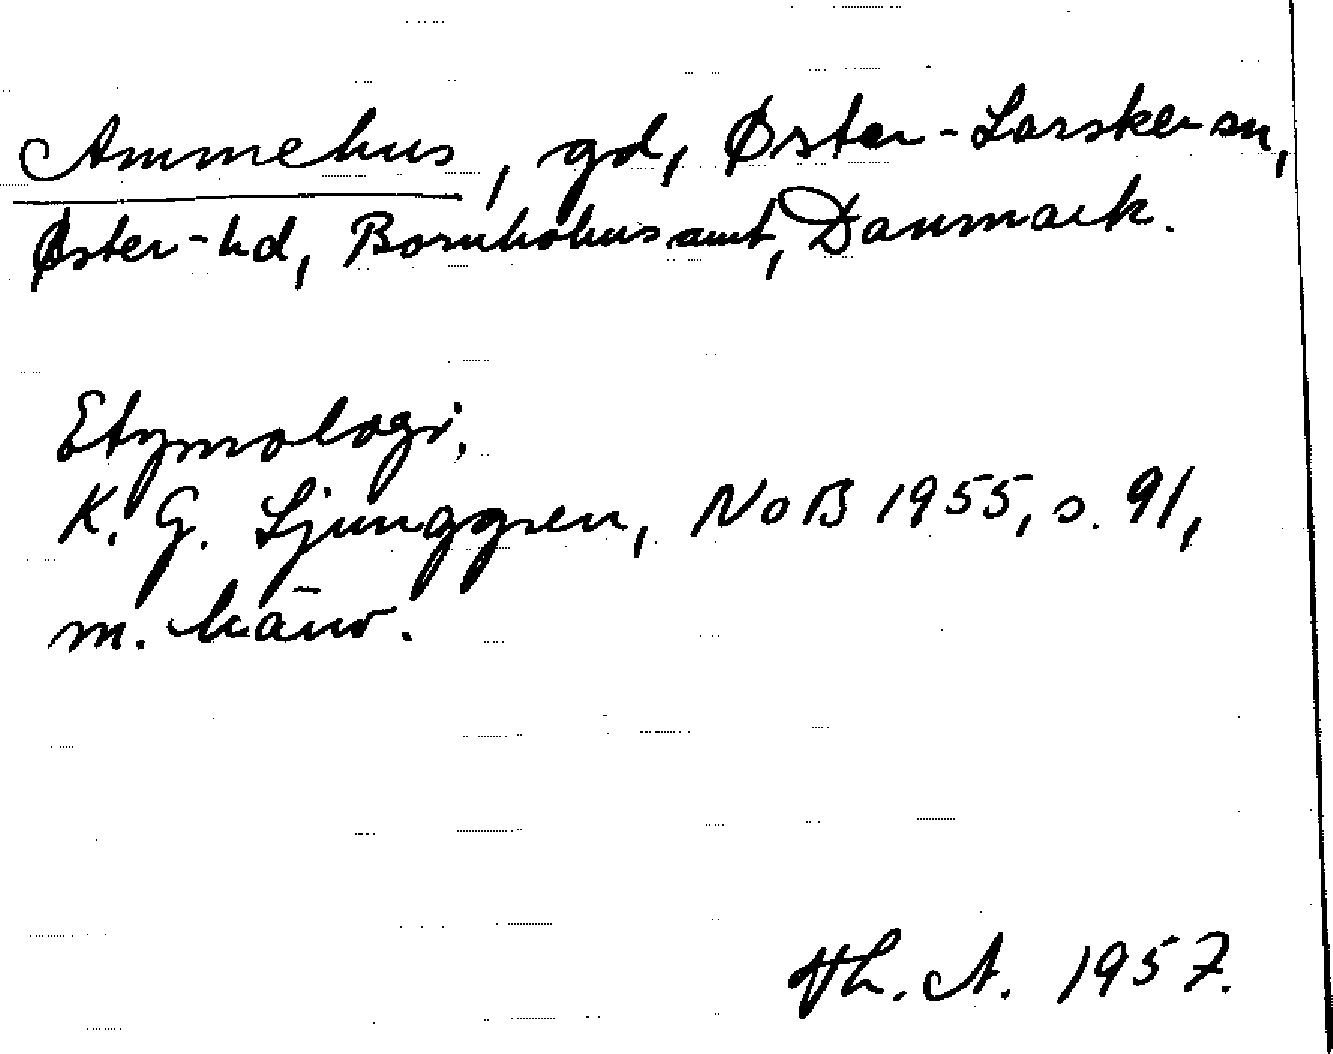 Ammehus, gd, Øster-Larsker sn,
Øster-hd, Bornholms amt, Danmark.
Etymologi.
K. G. Ljunggren, NoB 1955, s. 91,
m. hänv.
Th. A. 1957.